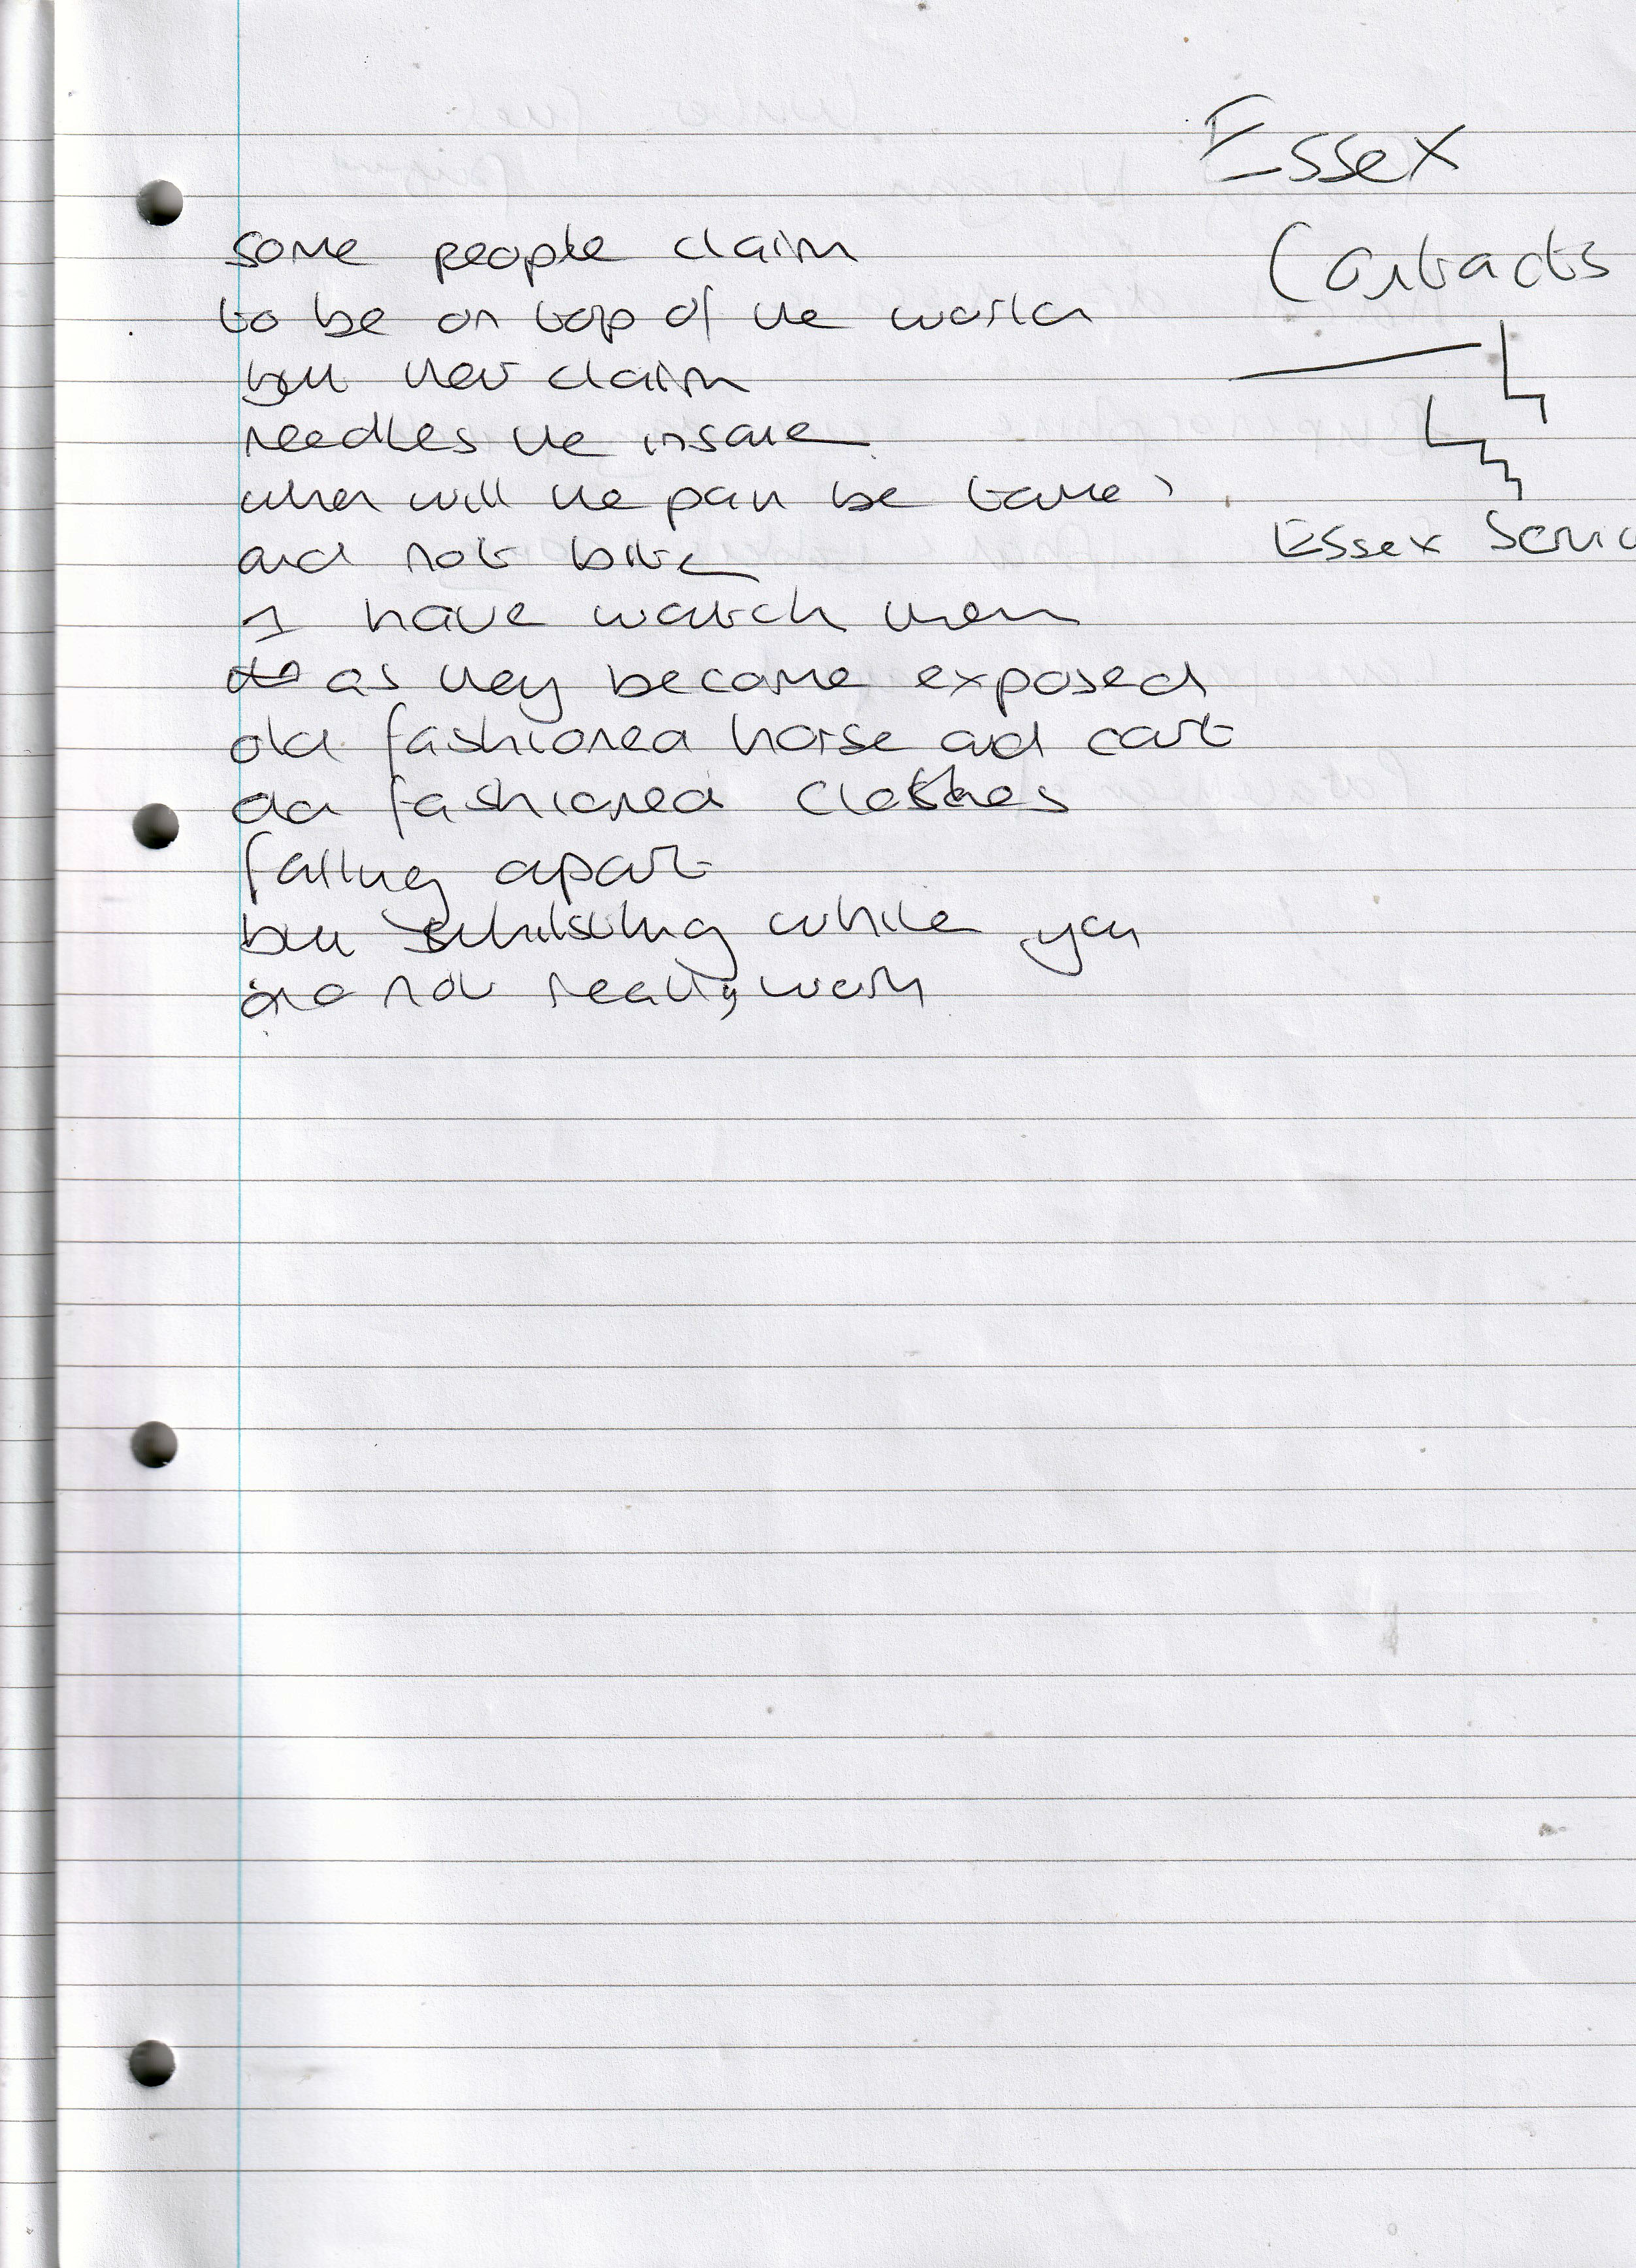 Essex
Contracts
some people claim
to be on top of the world
but that claim
needles the insane
when will the pain be tame
and not bite
I have watch them
as they become exposed
old fashioned horse and cart
old fashioned clothes
falling apart
but while you
are not really work
Essex